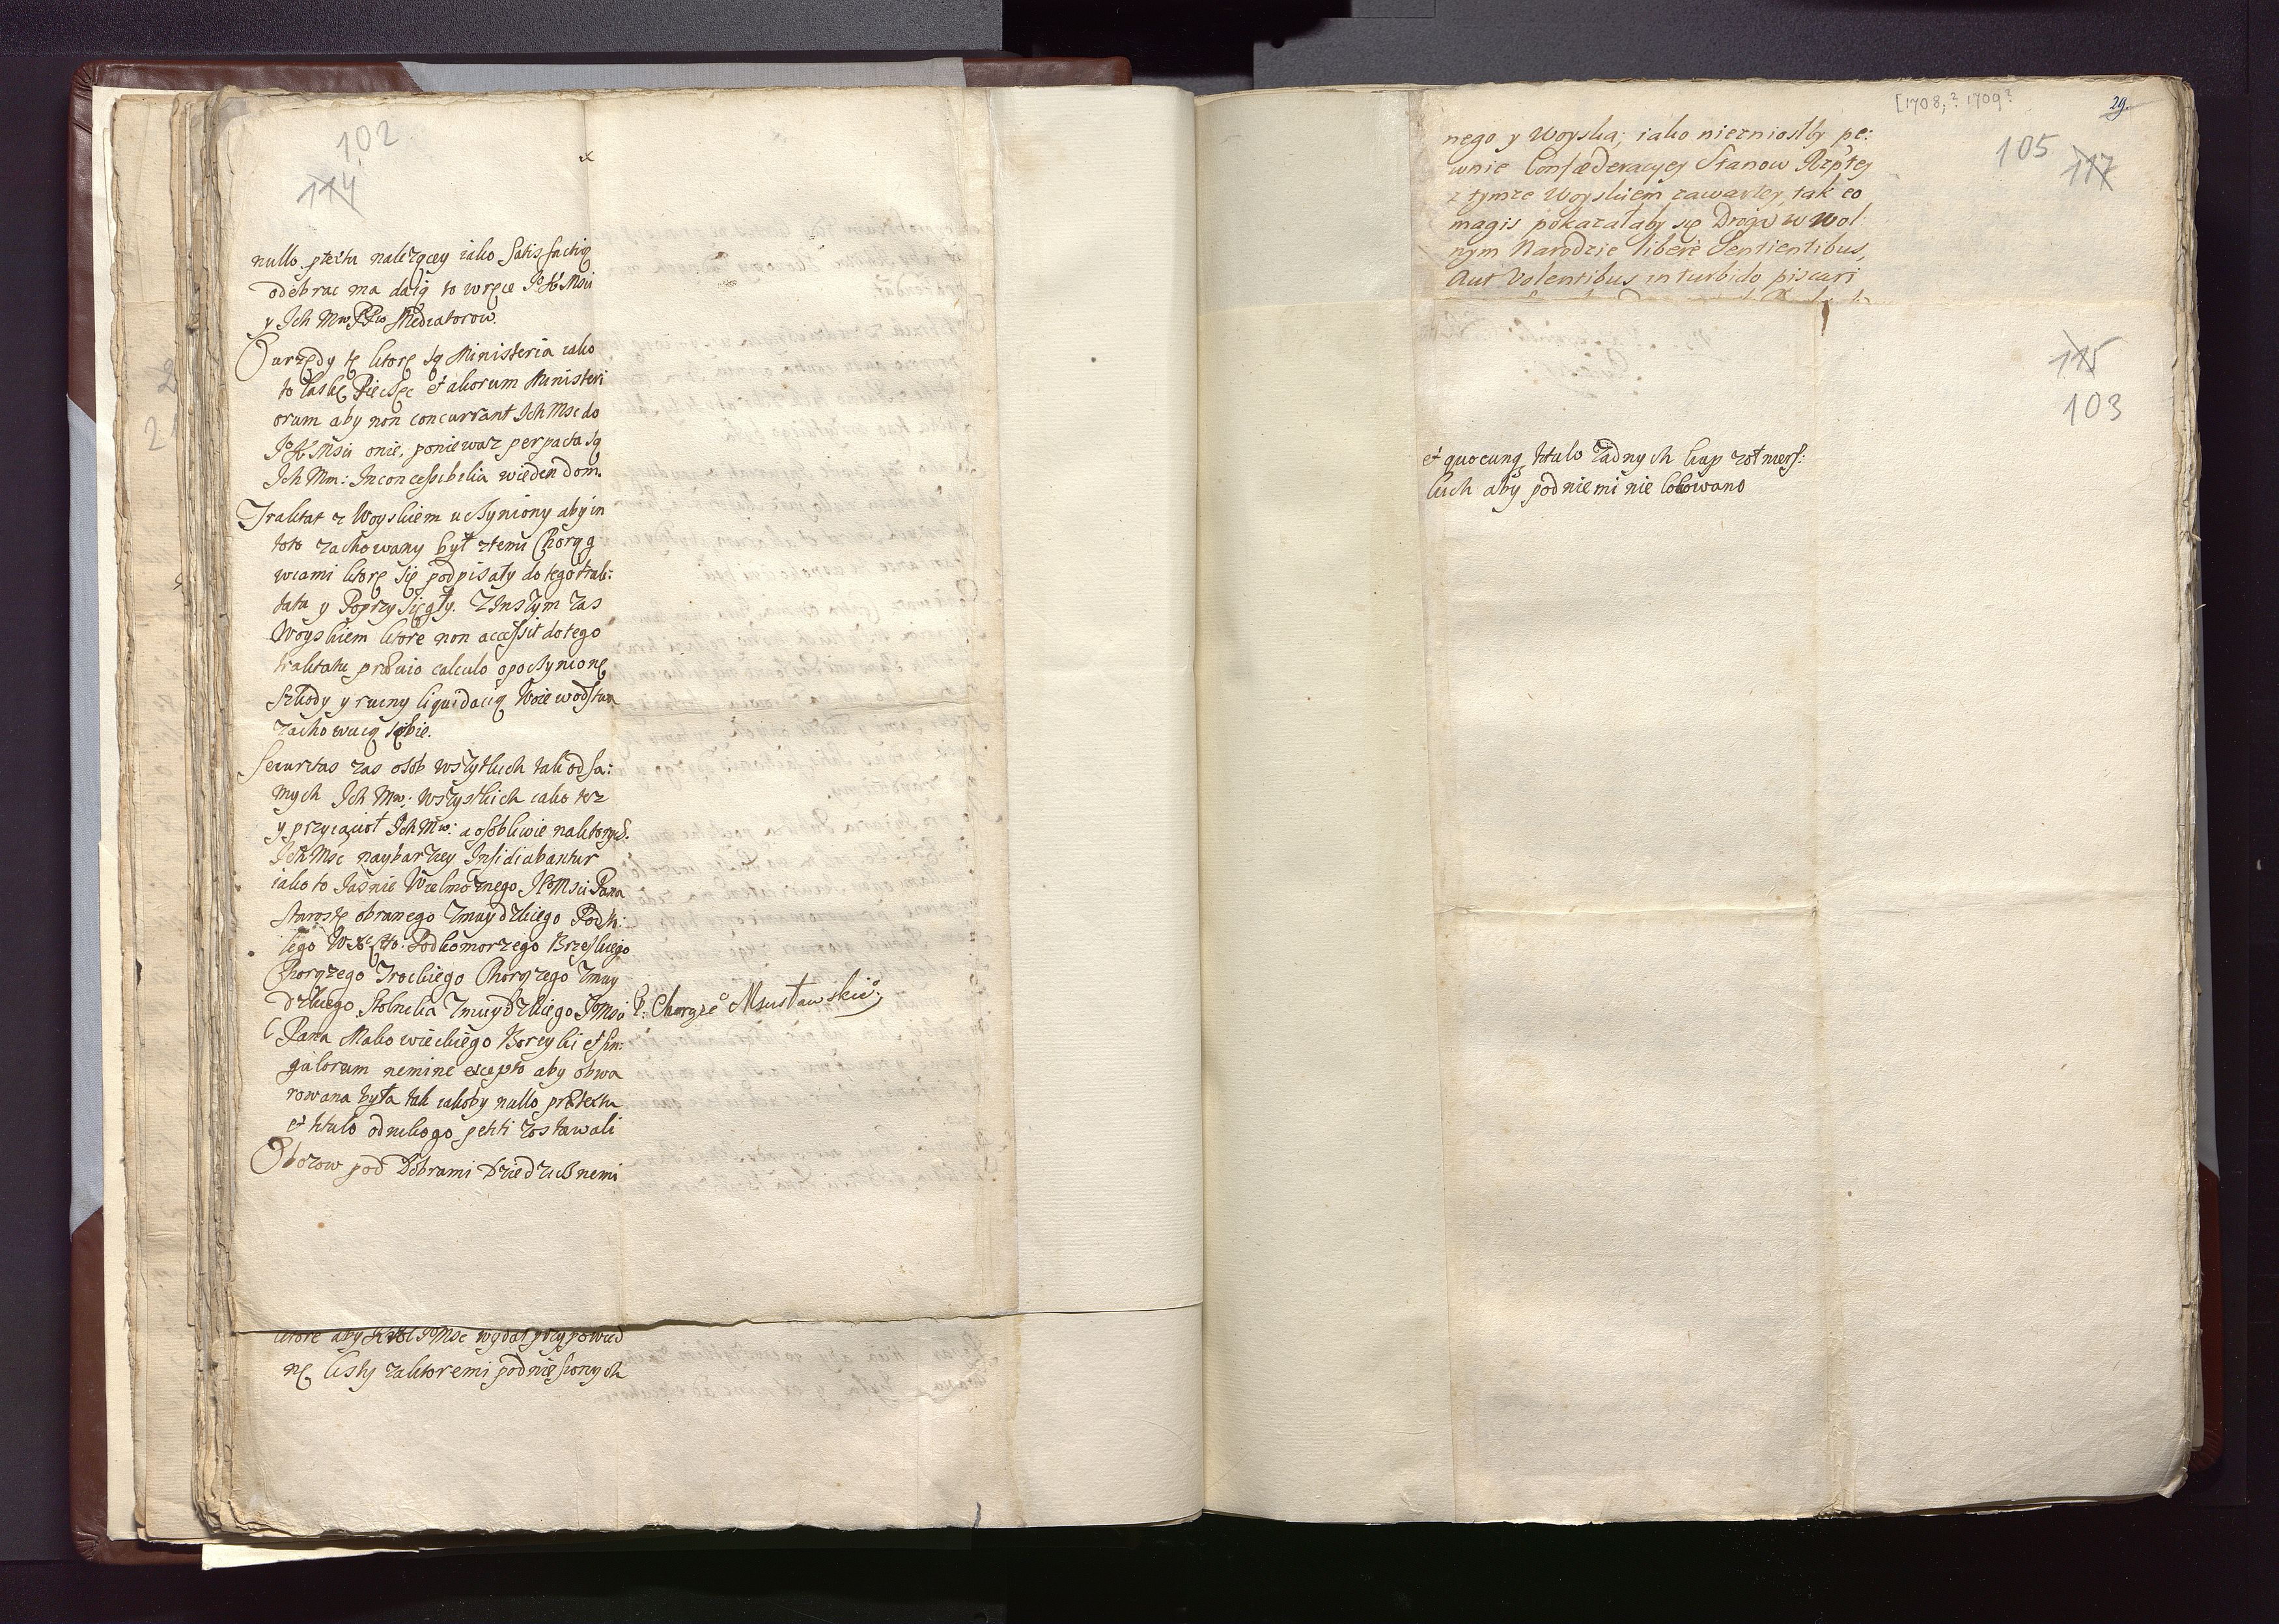 102
114
nullo prætextu należący iako Satisfactią
odebrac ma daią to wręce JoKMsci
y Ich Mw PPw Mediatorow.
O urzędy tę ktorę są Ministeria iako
to łaskę Pieczęc et aliorum Ministeri
orum aby non concurrant Ich Msc do
JoKMsci onie, poniewasz per pacta są
Ich Mm: Inconcessibilia wieden dom.
Traktat z Woyskiem uczyniony aby in
toto zachowany był ztemi Chorąg
wiami ktorę się podpisały do tego trak:
tatu y Poprzysięgły. Z Inszym zas
Woyskiem ktore non accessit do tego
traktatu prævio calculo o poczynionę
szkody y ruiny liquidacią Woiewodstwa
zachowuią sobie.
Securitas zas osob wszytkich tak od sa:
mych Ich Mw: wszystkich iako tez
y przyiacioł Ich Mw: a osobliwie na ktorych
Ich Msc naybarzey Insidiabantur
iako to Jasnie Wielmoznego JoMsci Pana
Starostę obranego Zmuydzkiego Podst:
lego WXLitto: Podkomorzego Brzeskiego
Chorązego Trockiego Chorązego Zmuy
dzkiego Stolnika Zmuydzkiego JoMsci P: Chorąze° Mscisławskie°:
Pana Makowieckiego Borzyki et sin:
gulorum nemine excepto aby obwa
rowana była tak iakoby nullo prætextu
et titulo od nikogo petiti zostawali
Obozow pod Dobrami Dziedzicznemi
ktore aby Krol JoMsc wydał przypowied
nę listy za ktoremi podniesionych
[1708,? 1709?
29.
105
117
nego y Woyska; iako niezniosłby pe:
wnie Confæderacyey Stanow Rzptey
z tymze Woyskiem zawartey, tak eo
magis pokazałaby się Droga w wol:
nym Narodzie liberè Sentientibus,
Aut Volentibus in turbido piscari
115
103
et quocunq titulo zadnych kup rotmers:
kich aby pod niemi nie lokowano